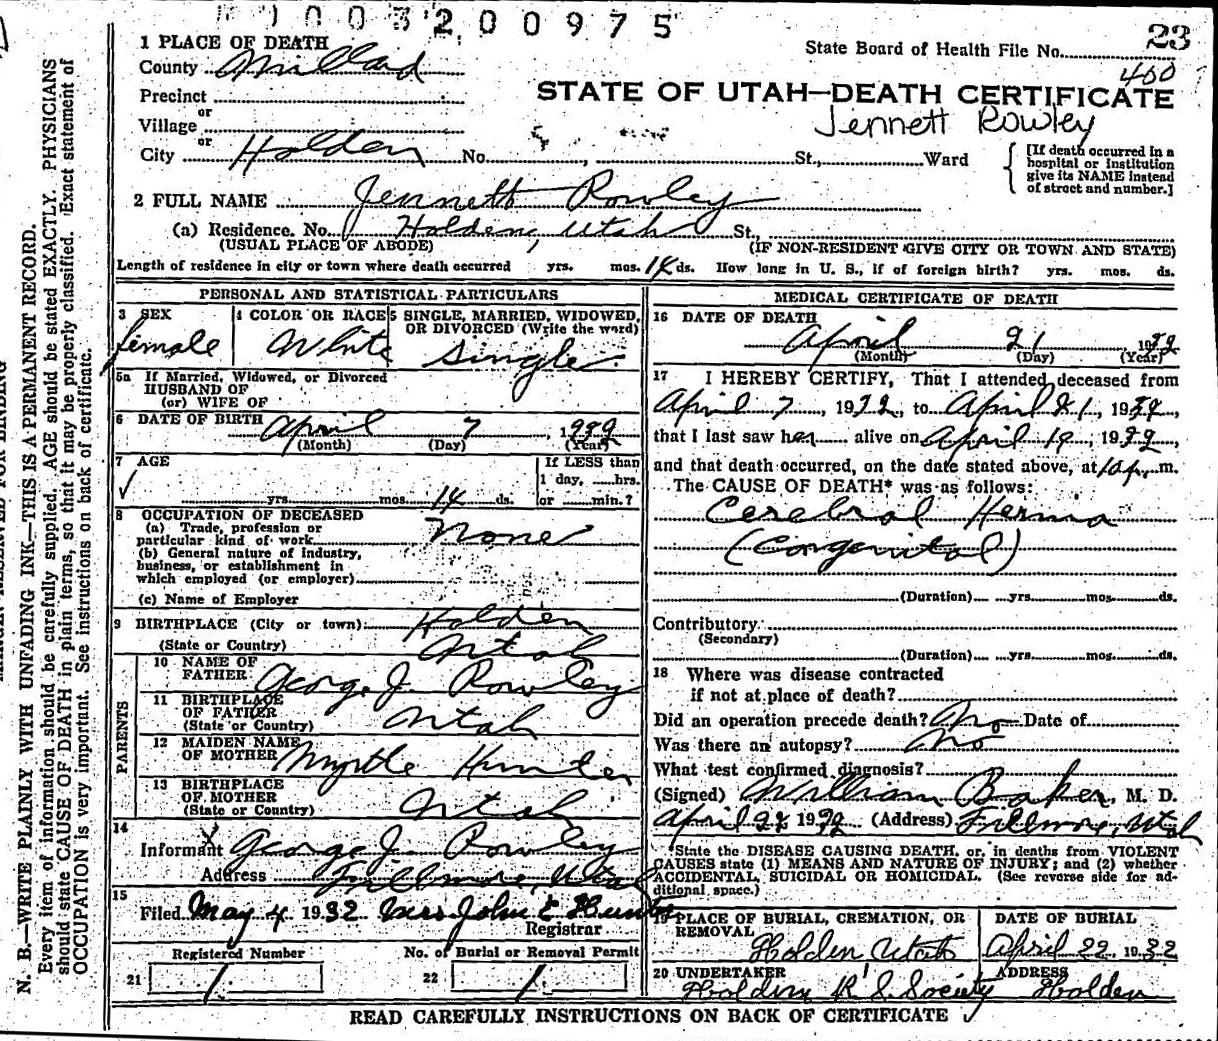 003200975
23
State Board of Health File No.
400
1 PLACE OF DEATH
County Millard
STATE OF UTAH—DEATH CERTIFICATE
Jennett Rowley
Precinct
or
Village
or
City Holden No. , St., Ward
[If death occurred in a hospital or institution give its NAME instead of street and number.]
2 FULL NAME Jennett Rowley
(a) Residence. No. Holden, Utah St.,
(USUAL PLACE OF ABODE) (IF NON-RESIDENT GIVE CITY OR TOWN AND STATE)
Length of residence in city or town where death occurred yrs. mos. 14 ds. How long in U. S., if of foreign birth? yrs. mos. ds.
PERSONAL AND STATISTICAL PARTICULARS
3 SEX 4 COLOR OR RACE 5 SINGLE, MARRIED, WIDOWED, OR DIVORCED (Write the word)
female White Single
5a If Married, Widowed, or Divorced
HUSBAND OF
(or) WIFE OF
6 DATE OF BIRTH April 7, 1932
(Month) (Day) (Year)
7 AGE If LESS than
1 day, hrs.
yrs. mos. 14 ds. or min.?
8 OCCUPATION OF DECEASED
(a) Trade, profession or
particular kind of work None
(b) General nature of industry,
business, or establishment in
which employed (or employer)
(c) Name of Employer
9 BIRTHPLACE (City or town) Holden
(State or Country) Utah
PARENTS
10 NAME OF FATHER George J. Rowley
11 BIRTHPLACE OF FATHER
(State or Country) Utah
12 MAIDEN NAME OF MOTHER Myrtle Hunter
13 BIRTHPLACE OF MOTHER
(State or Country) Utah
14
Informant George J. Rowley
Address Fillmore, Utah
15
Filed May 4 1932 Mrs John E Hunter
Registrar
Registered Number No. of Burial or Removal Permit
21 1 22 1
MEDICAL CERTIFICATE OF DEATH
16 DATE OF DEATH
April 21 1932
(Month) (Day) (Year)
17 I HEREBY CERTIFY, That I attended deceased from
April 7, 1932, to April 21, 1932,
that I last saw her alive on April 19, 1932,
and that death occurred, on the date stated above, at 1 a. m.
The CAUSE OF DEATH* was as follows:
Cerebral Herma
(Congenital)
(Duration) yrs. mos. ds.
Contributory
(Secondary)
(Duration) yrs. mos. ds.
18 Where was disease contracted
if not at place of death?
Did an operation precede death? No Date of
Was there an autopsy? No
What test confirmed diagnosis?
(Signed) William Baker, M. D.
April 22 1932 (Address) Fillmore, Utah
*State the DISEASE CAUSING DEATH, or, in deaths from VIOLENT
CAUSES state (1) MEANS AND NATURE OF INJURY; and (2) whether
ACCIDENTAL, SUICIDAL OR HOMICIDAL. (See reverse side for ad-
ditional space.)
19 PLACE OF BURIAL, CREMATION, OR REMOVAL DATE OF BURIAL
Holden Utah April 22 1932
20 UNDERTAKER ADDRESS
Holden R. S. Society Holden
READ CAREFULLY INSTRUCTIONS ON BACK OF CERTIFICATE
N. B.—WRITE PLAINLY WITH UNFADING INK—THIS IS A PERMANENT RECORD.
Every item of information should be carefully supplied. AGE should be stated EXACTLY. PHYSICIANS
should state CAUSE OF DEATH in plain terms, so that it may be properly classified. Exact statement of
OCCUPATION is very important. See instructions on back of certificate.